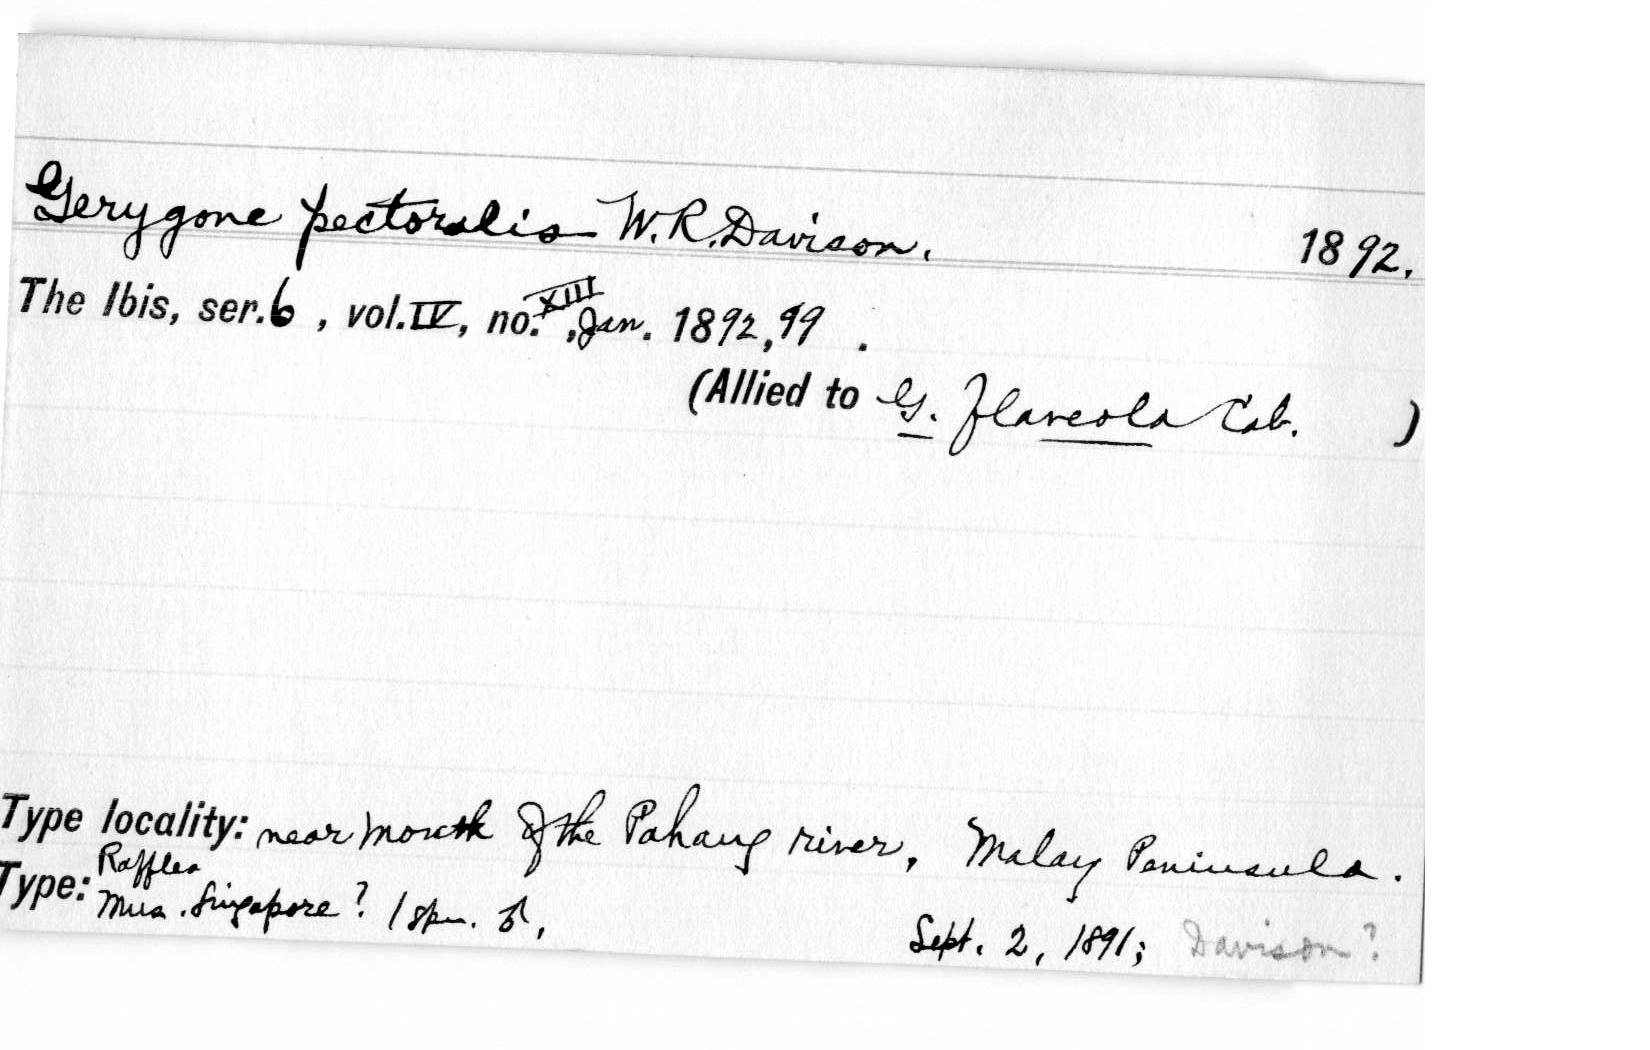 Gerygone pectoralis W.R.Davison. 1892.
The Ibis, ser.6, vol.IV, no.XIII, Jan. 1892,99.
(Allied to G. flaveola Cab. )
Type locality: near mouth of the Pahang river, Malay Peninsula.
Type: Raffles Mus. Singapore? 1 spm. ♂, Sept. 2, 1891; Davison?